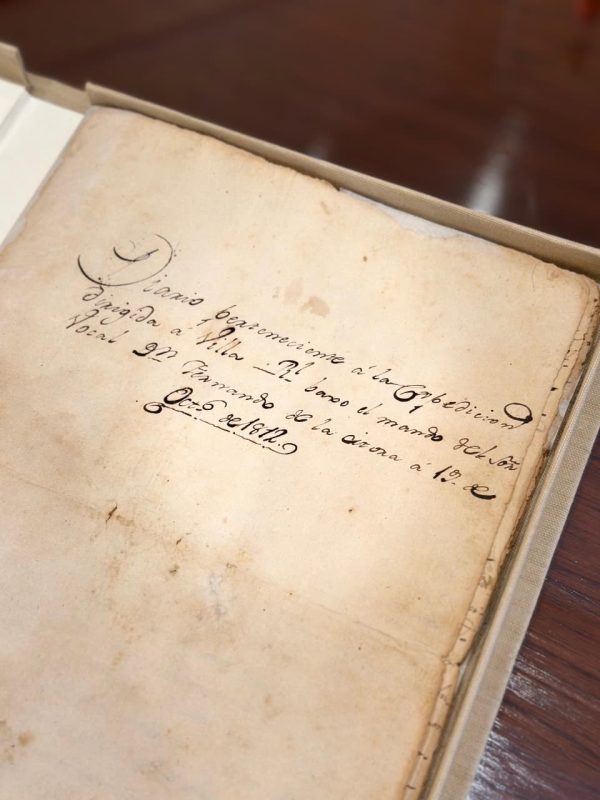 Diario perteneciente á la Expedicion
dirigida á Villa Rl. baxo el mando del Sor.
Vocal Dn. Fernando de la á 19. de
Octe. de 1812.